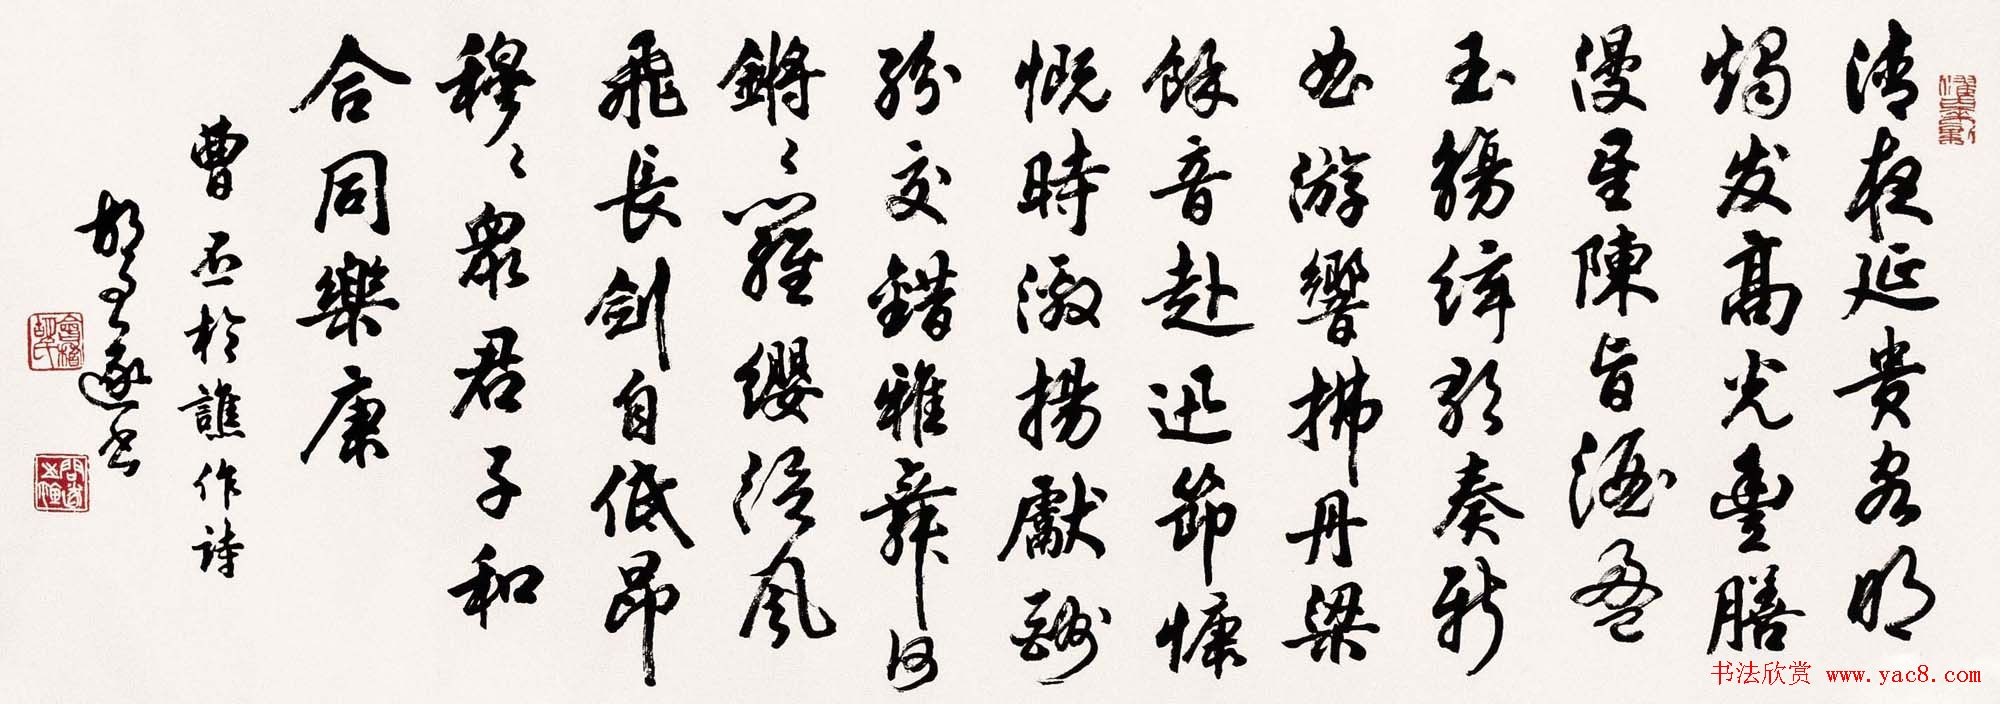 清夜延貴客明
燭发高光豐膳
漫星陳旨酒盈
玉觴絃歌奏新
曲游響拂丹梁
餘音赴迅節慷
慨時激揚獻酬
紛交錯雅舞何
鏘々羅纓從風
飛長劍自低昂
穆々眾君子和
合同樂康
曹丕於譙作詩
书法欣赏 www.yac8.com